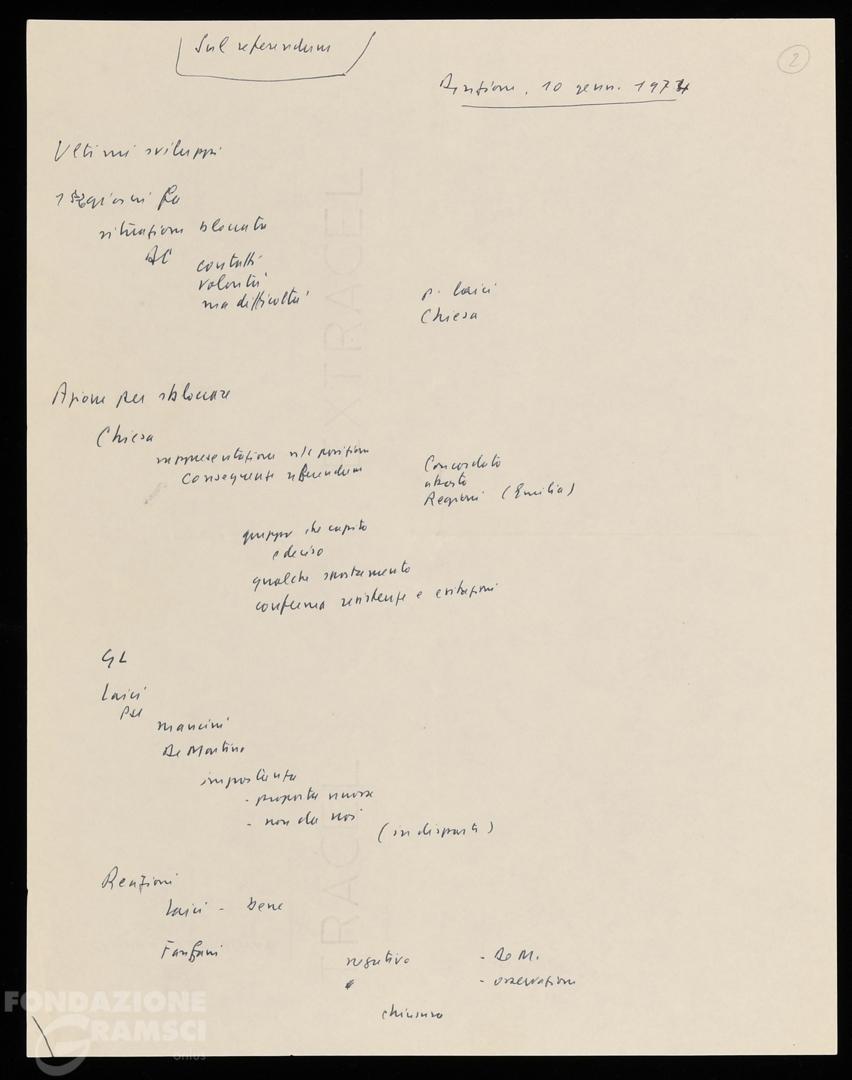 Sul referendum
2
Direzione, 10 genn. 1974
Ultimi sviluppi
giorni fa
situazione bloccata
DC contatti
volontà
ma difficoltà
p. laici
Chiesa
Azione per sbloccare
Chiesa
rappresentazione ns/ posizione
conseguenze referendum
Concordato
aborto
Regioni (Emilia)
gruppo che capito
e deciso
qualche spostamento
conferma resistenze e esitazioni
GL
Laici
PSI
Mancini
De Martino
importanza
- proposta nuova
- non da noi
(in disparte)
Reazioni
Laici - bene
Fanfani
negativo
- De M.
- osservazioni
chiusura
FONDAZIONE
GRAMSCI
onlus
EXTRACEL
TRACEL